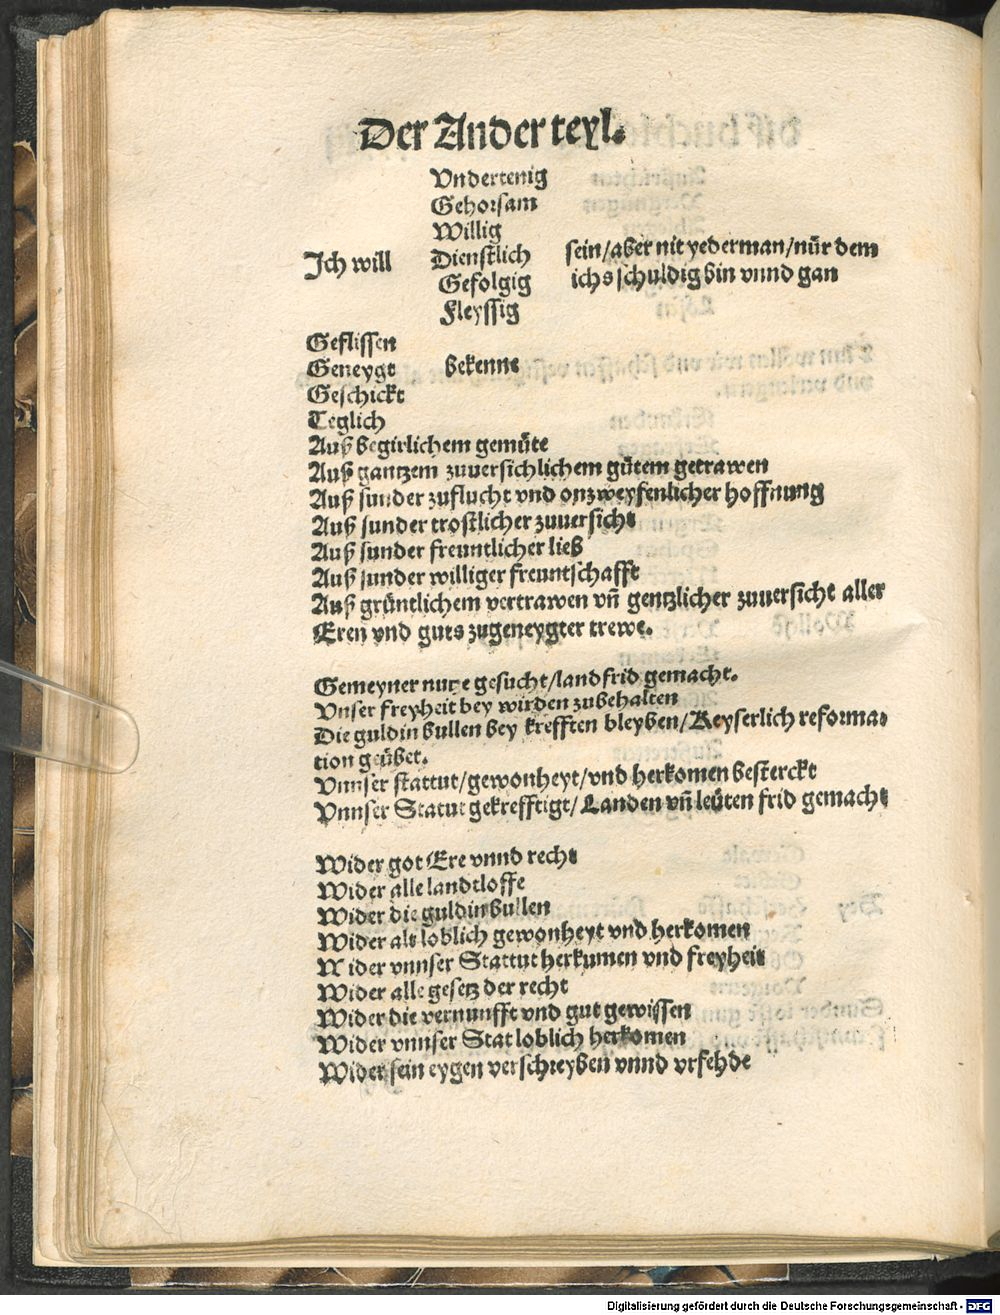 Der Ander teyl.
Vndertenig
Gehorsam
Willig
Ich will Dienstlich sein/aber nit yederman/nür dem
Gefolgig ichs schuldig bin vnnd gan
Fleyssig
Geflissen
Geneygt bekennt
Geschickt
Teglich
Auß begirlichem gemüte
Auß gantzem zuuersichlichem gütem getrawen
Auß sunder zuflucht vnd onzweyfenlicher hoffnung
Auß sunder trostlicher zuuersicht
Auß sunder freuntlicher ließ
Auß sunder williger freuntschafft
Auß grüntlichem vertrawen vñ gentzlicher zuuersicht aller
Eren vnd guts zugeneygter trewe.
Gemeyner nutze gesucht/landfrid gemacht.
Vnser freyheit bey wirden zubehalten
Die guldin bullen bey krefften bleyben/Keyserlich reforma-
tion geübet.
Vnnser stattut/gewonheyt/vnd herkomen besterckt
Vnnser Statut gekrefftigt/Landen vñ leüten frid gemacht
Wider got Ere vnnd recht
Wider alle landtloffe
Wider die guldin bullen
Wider als loblich gewonheyt vnd herkomen
Wider vnnser Stattut herkumen vnd freyheit
Wider alle gesetz der recht
Wider die vernunfft vnd gut gewissen
Wider vnnser Stat loblich herkomen
Wider sein eygen verschreyben vnnd vrfehde
Digitalisierung gefördert durch die Deutsche Forschungsgemeinschaft - DFG